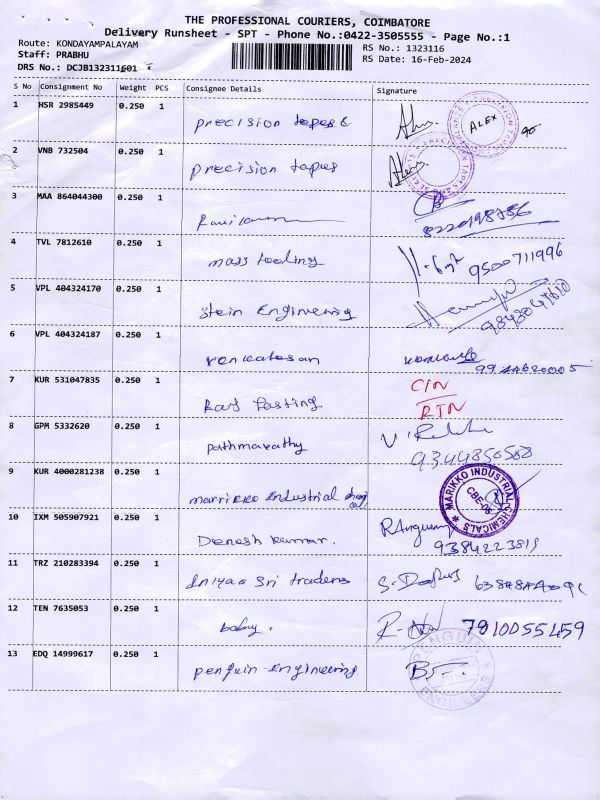 THE PROFESSIONAL COURIERS, COIMBATORE
Delivery Runsheet - SPT - Phone No.:0422-3505555 - Page No.:1
Route: KONDAYAMPALAYAM
Staff: PRABHU
DRS No.: DCJB132311601
RS No.: 1323116
RS Date: 16-Feb-2024
S No Consignment No Weight PCS Consignee Details Signature
1 HSR 2985449 0.250 1 precision tapes ALEX
2 VNB 732504 0.250 1 precision tapes
3 MAA 864044300 0.250 1
4 TVL 7812610 0.250 1 mass tooling 9500711996
5 VPL 404324170 0.250 1 Stein Engineering
6 VPL 404324187 0.250 1 venkatesan 9944620005
7 KUR 531047835 0.250 1 CIN
RTN
8 GPM 5332620 0.250 1 pathmavathy
9 KUR 4000281238 0.250 1 marrikko Industrial MARIKKO INDUSTRIAL CHEMICALS CBE-06
10 IXM 505907921 0.250 1 Denesh kumar.
9384223819
11 TRZ 210283394 0.250 1 Iniyaa Sri traders
12 TEN 7635053 0.250 1 baby. 7810055459
13 EDQ 14999617 0.250 1 penguin Engineering PENGUIN ENGINEERS